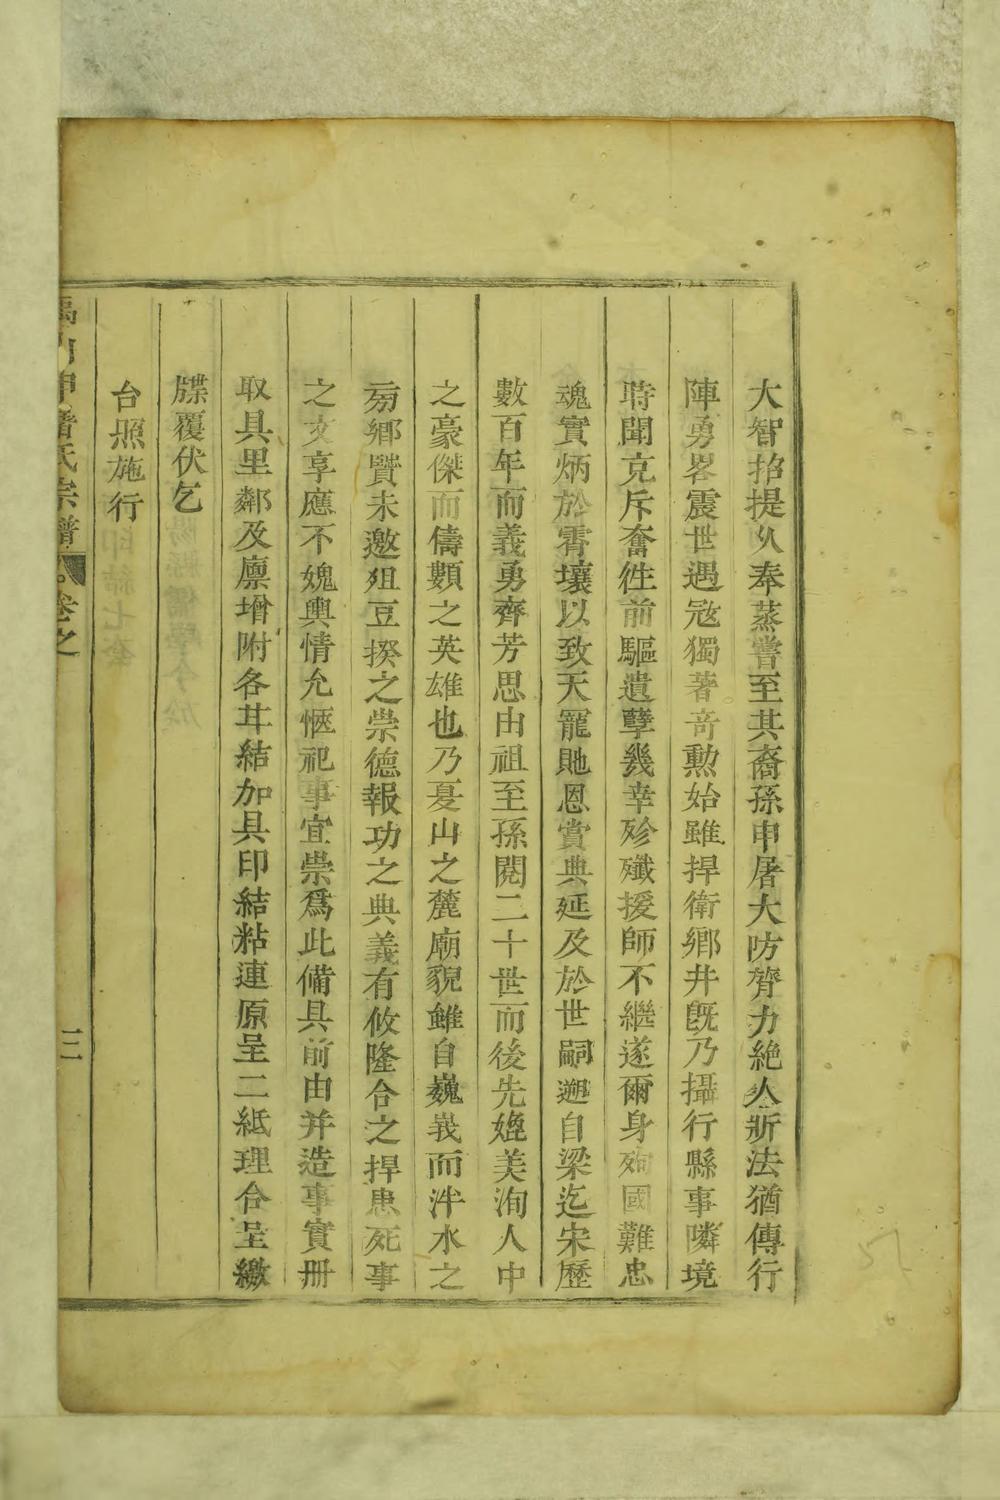 大智招提以奉蒸嘗至其裔孫申屠大防膂力絶人斨法猶傳行
陣勇畧震世遇寇獨著竒勲始雖捍衛鄉井旣乃攝行縣事隣境
時聞克斥奮徃前驅遺孽幾幸殄殲援師不繼遂爾身殉國難忠
魂實炳於霄壤以致天寵貤恩賞典延及於世嗣遡自梁迄宋歷
數百年而義勇齊芳思由祖至孫閱二十世而後先媲美洵人中
之豪傑而儔顥之英雄也乃戛山之麓廟貌雖自巍峩而泮水之
旁鄉賢未邀俎豆揆之崇德報功之典義有攸隆合之捍患死事
之文享應不媿輿情允愜祀事宜崇爲此備具前由并造事實冊
取具里鄰及廪增附各耳結加具印結粘連原呈二紙理合呈繳
牒覆伏乞
台照施行
申屠氏宗譜 卷之
三